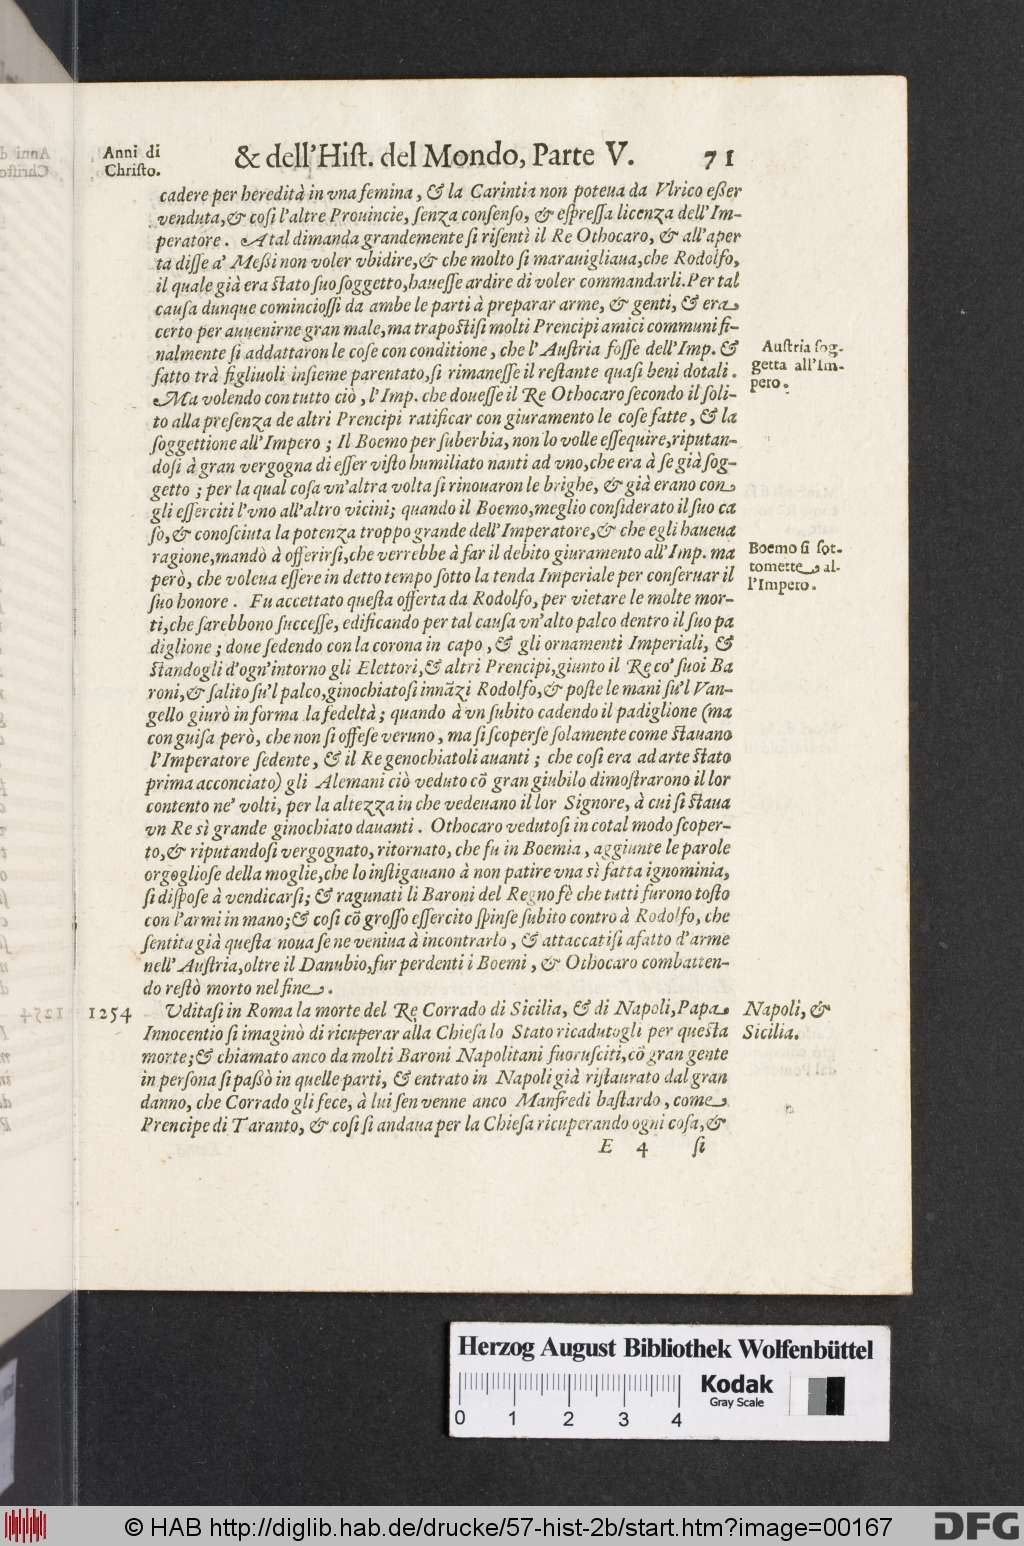 Anni di
Christo.
& dell'Hist. del Mondo, Parte V. 71
cadere per heredità in vna femina, & la Carintia non poteua da Vlrico eßer
venduta, & cosi l'altre Prouincie, senza consenso, & espressa licenza dell'Im-
peratore. A tal dimanda grandemente si risentì il Re Othocaro, & all'aper
ta disse a' Meßi non voler vbidire, & che molto si marauigliaua, che Rodolfo,
il quale già era stato suo soggetto, hauesse ardire di voler commandarli. Per tal
causa dunque cominciossi da ambe le parti à preparar arme, & genti, & era
certo per auuenirne gran male, ma trapostisi molti Prencipi amici communi fi-
nalmente si addattaron le cose con conditione, che l'Austria fosse dell'Imp. &
fatto trà figliuoli insieme parentato, si rimanesse il restante quasi beni dotali.
Austria sog-
getta all'Im-
pero.
Ma volendo con tutto ciò, l'Imp. che douesse il Re Othocaro secondo il soli-
to alla presenza de altri Prencipi ratificar con giuramento le cose fatte, & la
soggettione all'Impero; Il Boemo per suberbia, non lo volle essequire, riputan-
dosi à gran vergogna di esser visto humiliato nanti ad vno, che era à se già sog-
getto; per la qual cosa vn'altra volta si rinouaron le brighe, & già erano con
gli esserciti l'vno all'altro vicini; quando il Boemo, meglio considerato il suo ca
so, & conosciuta la potenza troppo grande dell'Imperatore, & che egli haueua
ragione, mandò à offerirsi, che verrebbe à far il debito giuramento all'Imp. ma
però, che voleua essere in detto tempo sotto la tenda Imperiale per conseruar il
suo honore. Fu accettato questa offerta da Rodolfo, per vietare le molte mor-
Boemo si sot-
tomette al-
l'Impero.
ti, che sarebbono successe, edificando per tal causa vn'alto palco dentro il suo pa
diglione; doue sedendo con la corona in capo, & gli ornamenti Imperiali, &
standogli d'ogn'intorno gli Elettori, & altri Prencipi, giunto il Re co' suoi Ba
roni, & salito su'l palco, ginochiatosi innãzi Rodolfo, & poste le mani su'l Van-
gello giurò in forma la fedeltà; quando à vn subito cadendo il padiglione (ma
con guisa però, che non si offese veruno, ma si scoperse solamente come stauano
l'Imperatore sedente, & il Re genochiatoli auanti; che cosi era ad arte stato
prima acconciato) gli Alemani ciò veduto cõ gran giubilo dimostrarono il lor
contento ne' volti, per la altezza in che vedeuano il lor Signore, à cui si staua
vn Re sì grande ginochiato dauanti. Othocaro vedutosi in cotal modo scoper-
to, & riputandosi vergognato, ritornato, che fu in Boemia, aggiunte le parole
orgogliose della moglie, che lo instigauano à non patire vna sì fatta ignominia,
si dispose à vendicarsi; & ragunati li Baroni del Regno fè che tutti furono tosto
con l'armi in mano; & cosi cõ grosso essercito spinse subito contro à Rodolfo, che
sentita già questa noua se ne veniua à incontrarlo, & attaccatisi afatto d'arme
nell'Austria, oltre il Danubio, fur perdenti i Boemi, & Othocaro combatten-
do restò morto nel fine.
1254 Vditasi in Roma la morte del Re Corrado di Sicilia, & di Napoli, Papa
Innocentio si imaginò di ricuperar alla Chiesa lo Stato ricadutogli per questa
Napoli, &
Sicilia.
morte; & chiamato anco da molti Baroni Napolitani fuorusciti, cõ gran gente
in persona si paßò in quelle parti, & entrato in Napoli già ristaurato dal gran
danno, che Corrado gli fece, à lui sen venne anco Manfredi bastardo, come
Prencipe di Taranto, & cosi si andaua per la Chiesa ricuperando ogni cosa, &
E 4 si
Herzog August Bibliothek Wolfenbüttel
Kodak
Gray Scale
0 1 2 3 4
© HAB http://diglib.hab.de/drucke/57-hist-2b/start.htm?image=00167
DFG